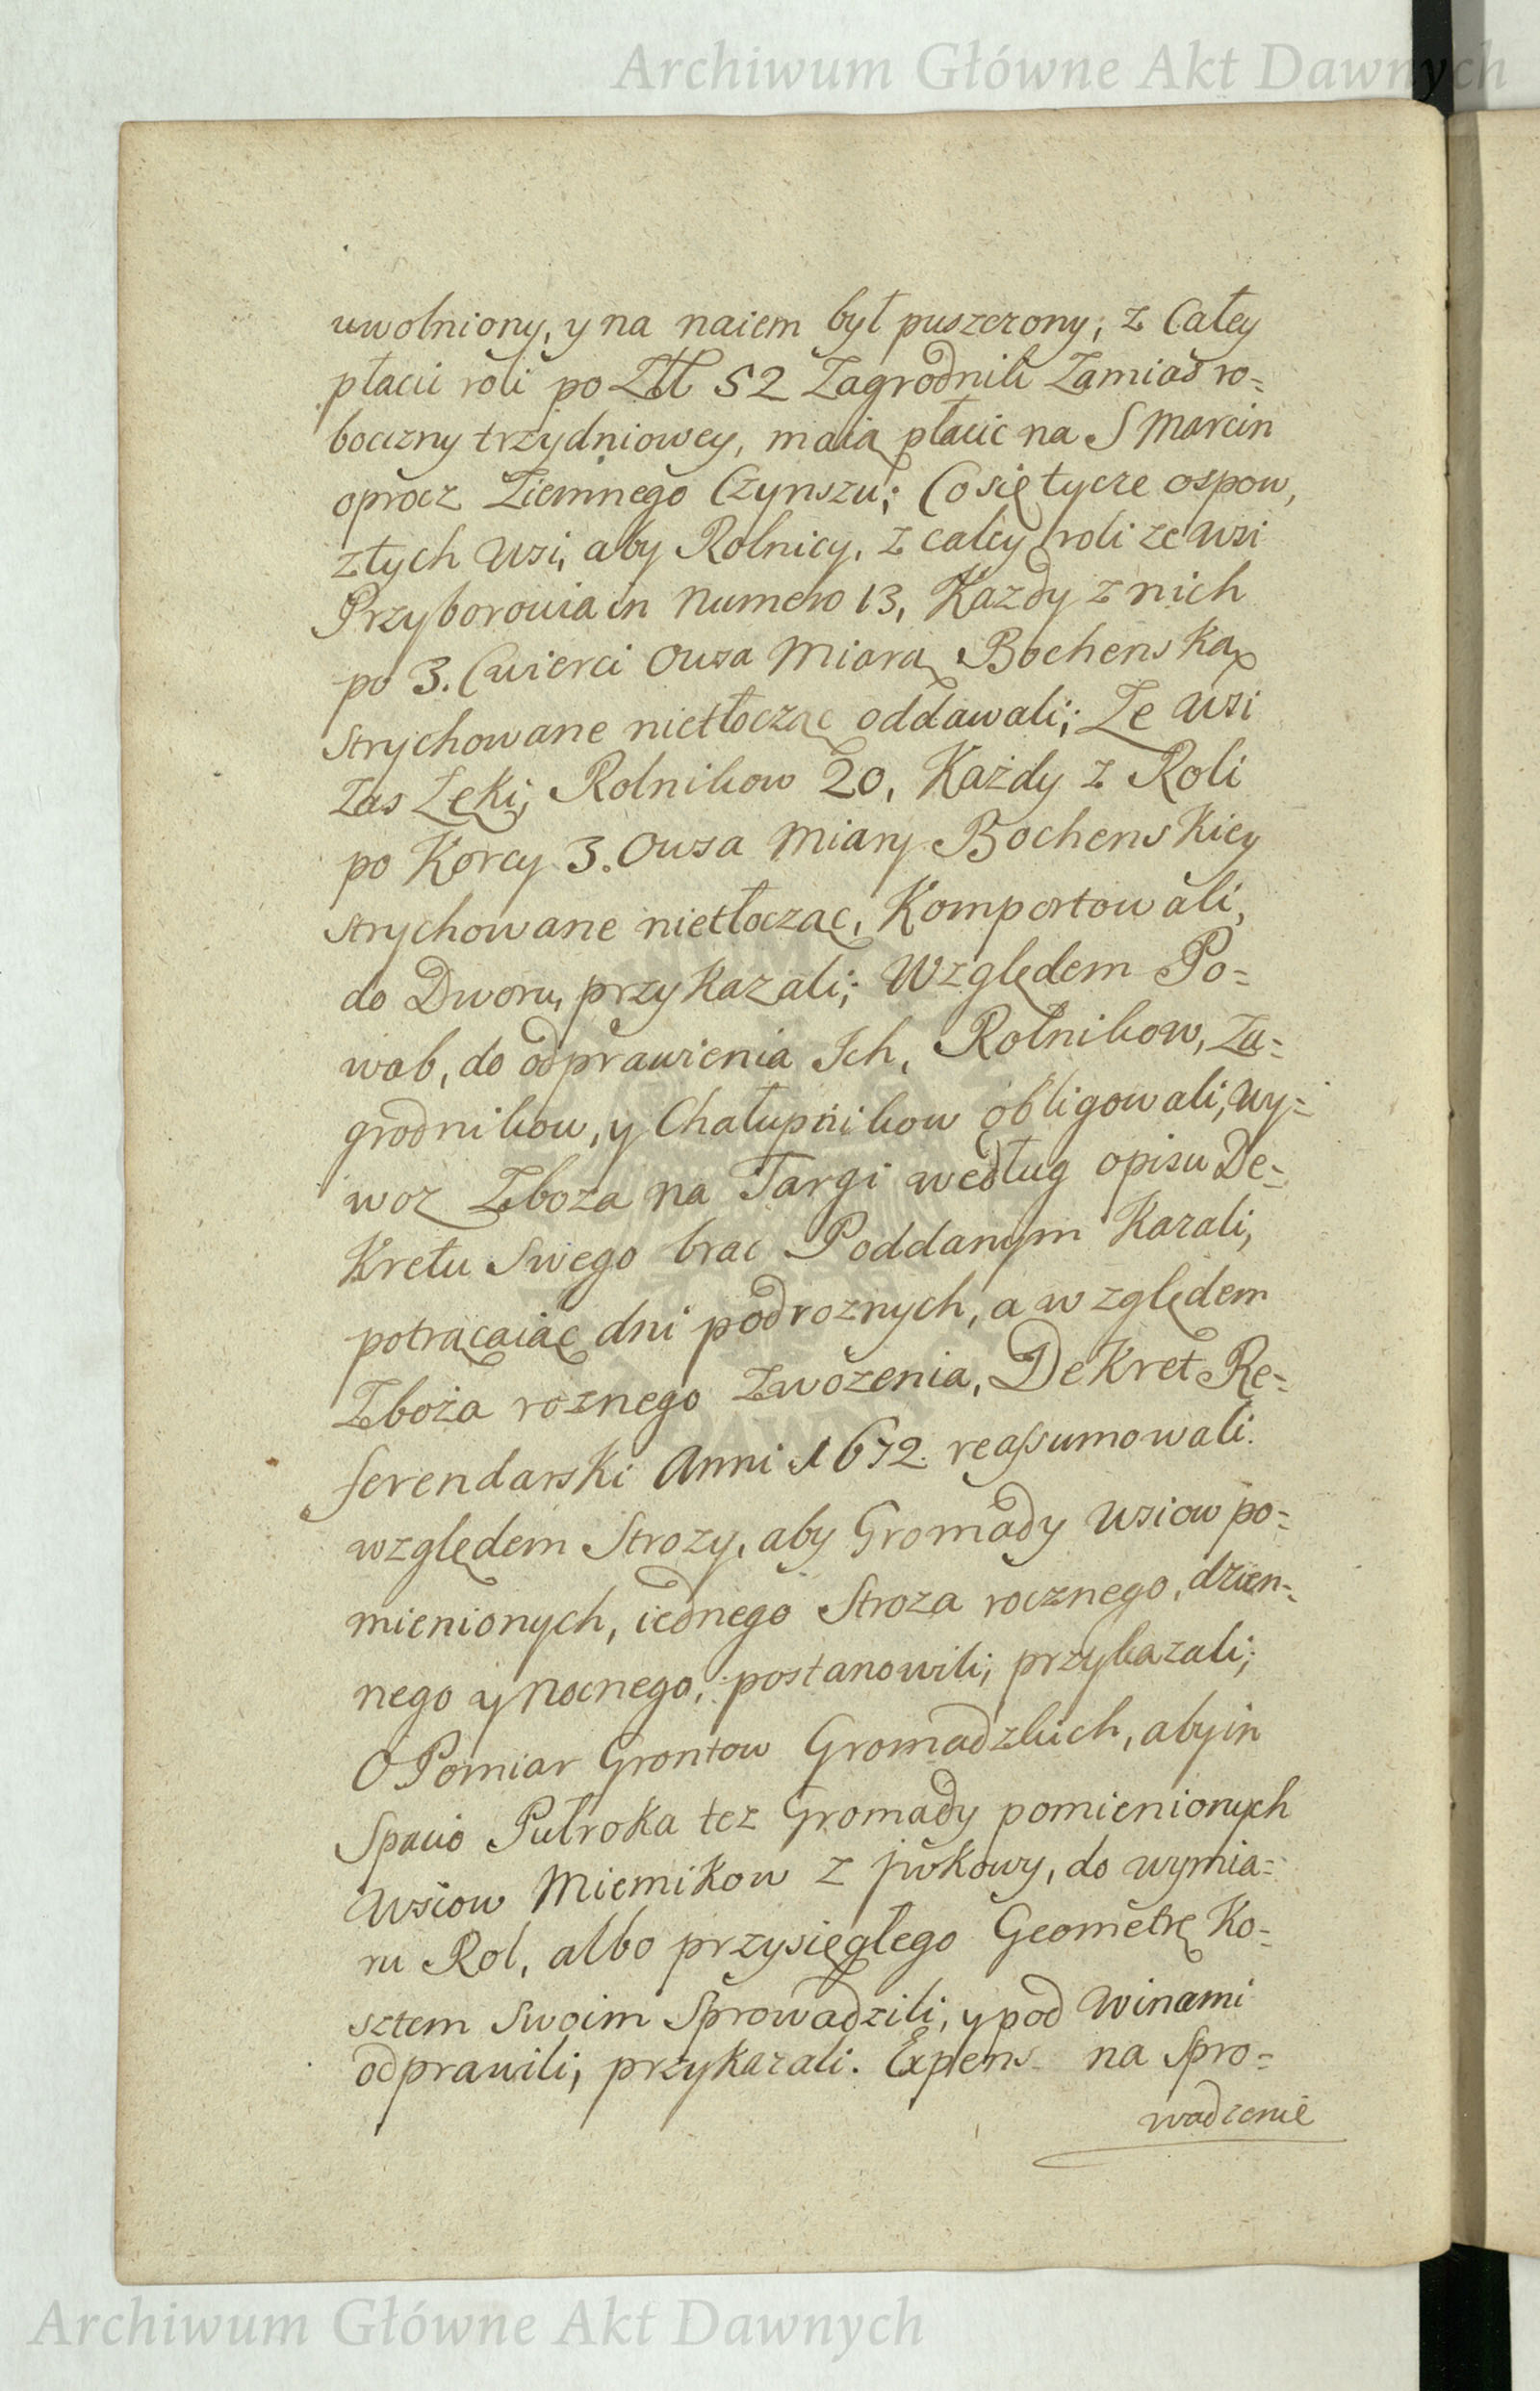 Archiwum Główne Akt Dawnych
uwolniony, y na naiem był puszczony; z Całey
płacii roli po Złł 52 Zagrodnili Zamiast ro=
boczny trzydniowey, maią płacic na S Marcin
oprocz Ziemnego Czynszu; Co się tycze ospow,
złych wsi, aby Rolnicy, z całey roli ze wsi
Przyborowia in Numero 13, Kazdy z nich
po 3. Cwierci Owsa Miarą Bochenską
strychowane nietłocząc oddawali; Ze wsi
Zas Łęki; Rolnikow 20, Każdy z Roli
po Korcy 3. Owsa Miary Bochenskiey
strychowane nietłocząc, Komportowali,
do Dworu, przykazali; Względem Po=
wab, do odprawienia Ich, Rolnikow, Za=
grodnikow, y Chałupnikow obligowali, wy=
woz Zboza na Targi według opisu De=
kretu Swego brac Poddanym Kazali,
potrącaiąc dni podroznych, a względem
Zboża roznego Zwożenia, Dekret Re=
ferendarski Anni 1672. reassumowali.
względem Strozy, aby Gromady wsiow po=
mienionych, iednego Stroza rocznego, dzien=
nego y Nocnego, postanowili, przykazali;
O Pomiar Grontow Gromadzkich, aby in
Spacio Pułroka tez Gromady pomienionych
Wsiow Miernikow z do wymia=
ru Rol, albo przysięgłego Geometrę Ko=
sztem Swoim Sprowadzili, y pod Winami
odprawili, przykazali. Expens na Spro=
wadzenie
Archiwum Główne Akt Dawnych